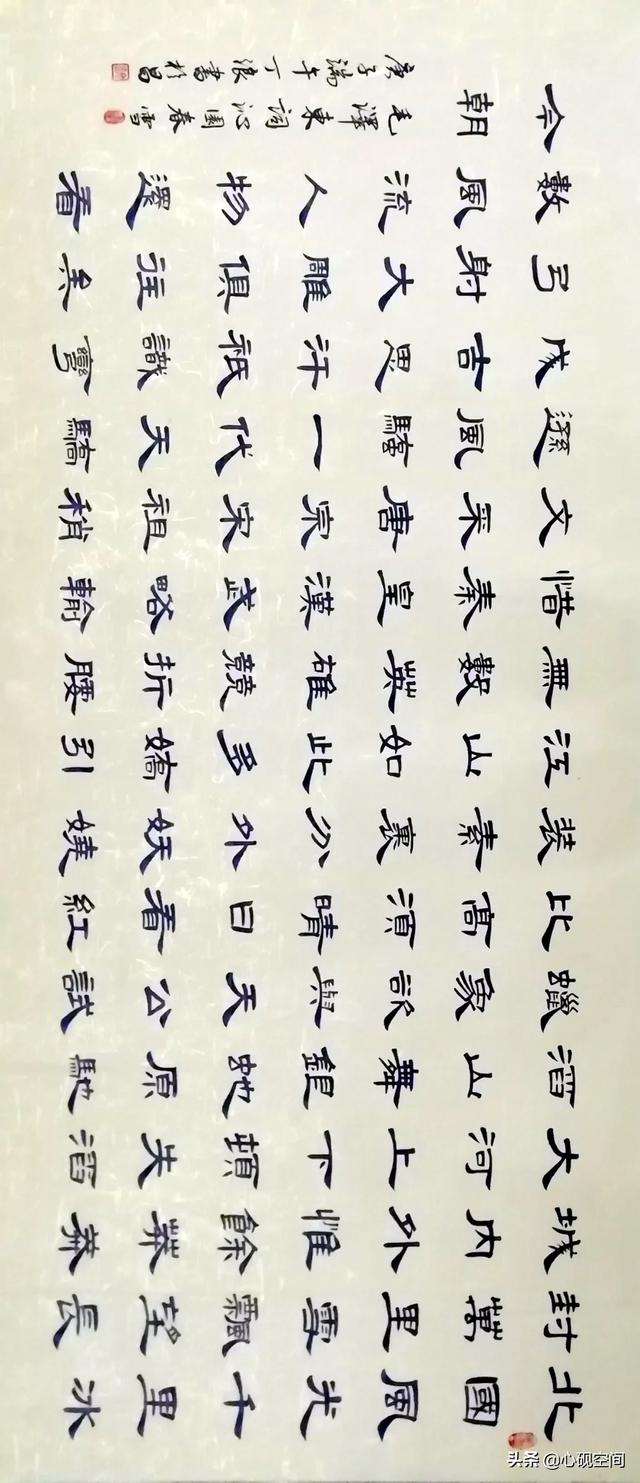 北國風光千里冰
封萬里雪飄望長
城內外惟餘莽莽
大河上下頓失滔
滔山舞銀蛇原馳
蠟象欲與天公試
比高須晴日看紅
裝素裹分外妖嬈
江山如此多嬌引
無數英雄競折腰
惜秦皇漢武略輸
文采唐宗宋祖稍
遜風騷一代天驕
成吉思汗祇識彎
弓射大雕俱往矣
數風流人物還看
今朝
毛澤東詞沁園春雪
庚子端午丁浪書於昌
头条 @心砚空间